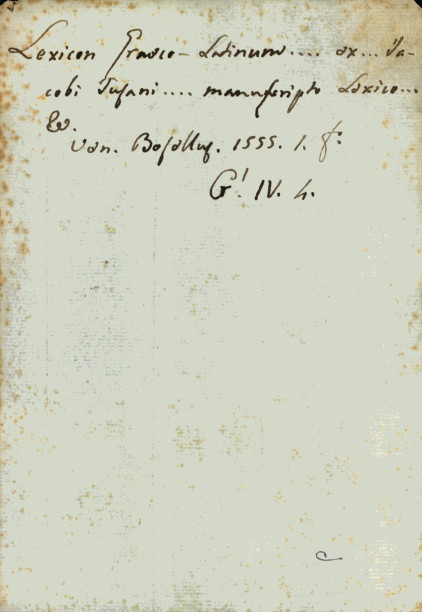 Lexicon Graeco-Latinum.... ex... Ja-
cobi Tusani.... manuscripto Lexico...
&.
Ven. Bosellus. 1555. 1. f:
G! IV. 4.